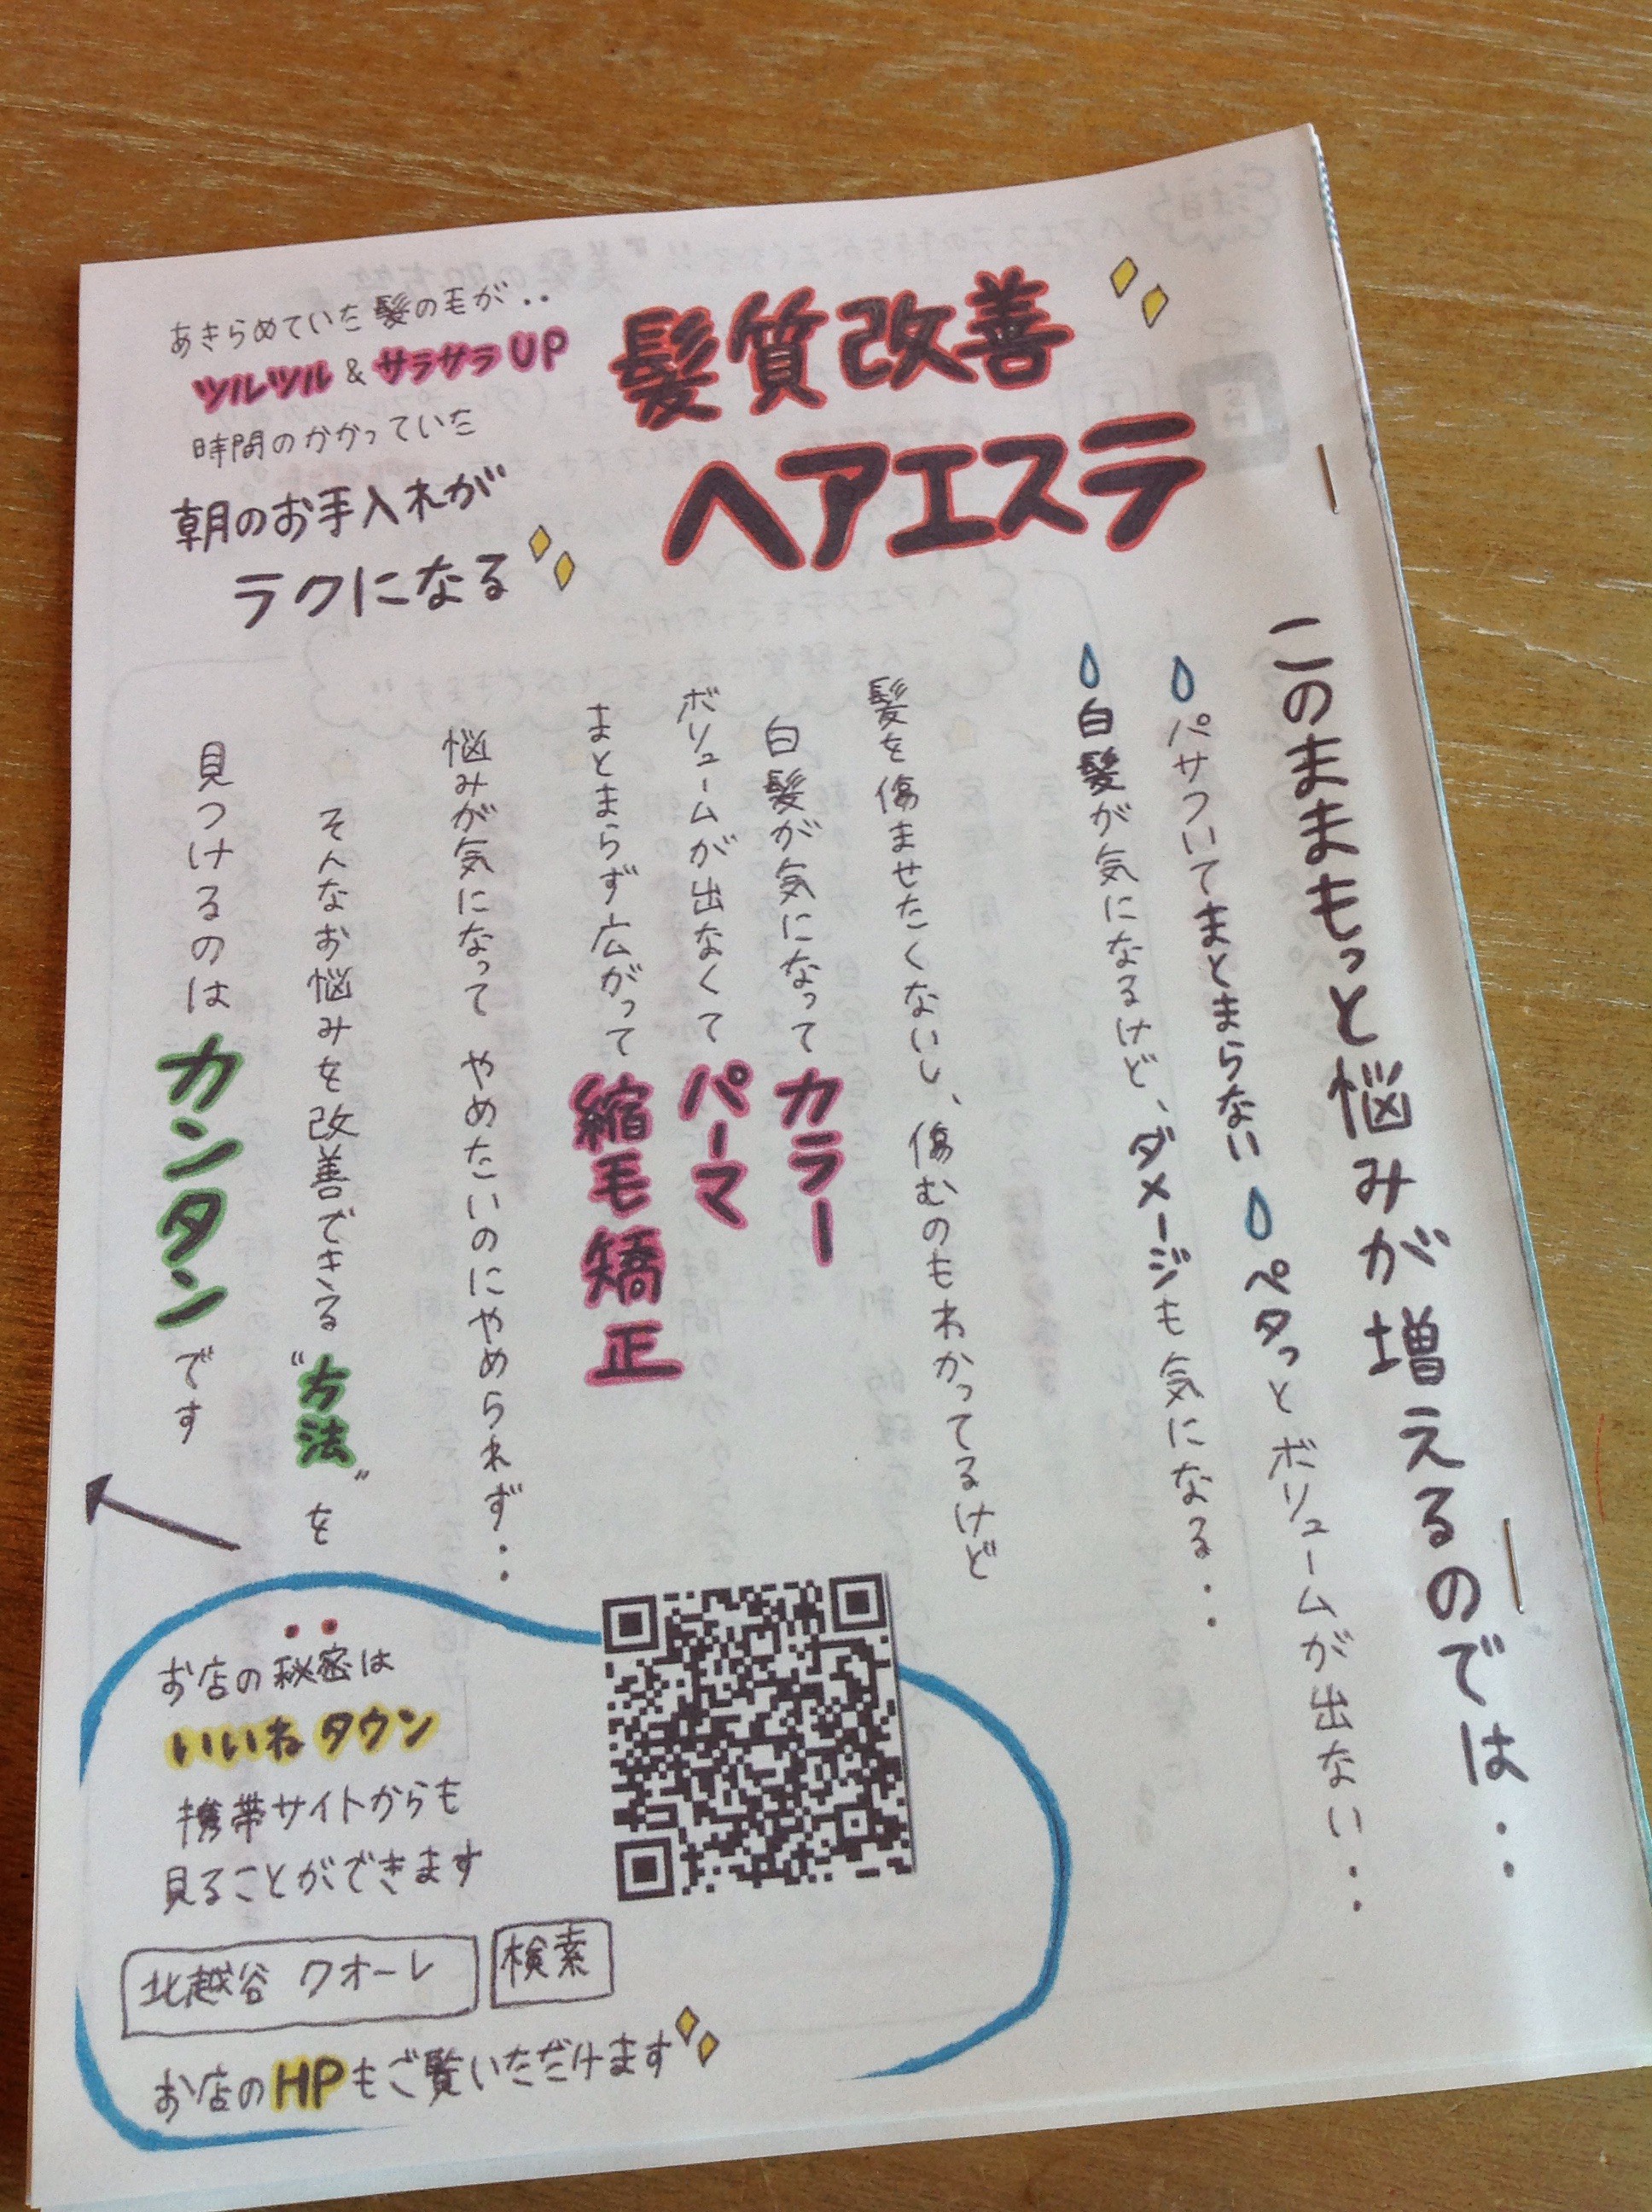 髪質改善
ヘアエステ
あきらめていた髪の毛が・・
ツルツル & サラサラ UP
時間のかかっていた
朝のお手入れが
ラクになる
このままもっと悩みが増えるのでは・・
パサついてまとまらない ペタっとボリュームが出ない・・
白髪が気になるけど、ダメージも気になる・・
髪を傷ませたくないし、傷むのもわかってるけど
白髪が気になって カラー
ボリュームが出なくて パーマ
まとまらず広がって 縮毛矯正
悩みが気になって やめたいのにやめられず・・
そんなお悩みを改善できる〝方法〟を
見つけるのは カンタン です
お店の秘密は
いいねタウン
携帯サイトからも
見ることができます
北越谷 クオーレ 検索
お店のHPもご覧いただけます